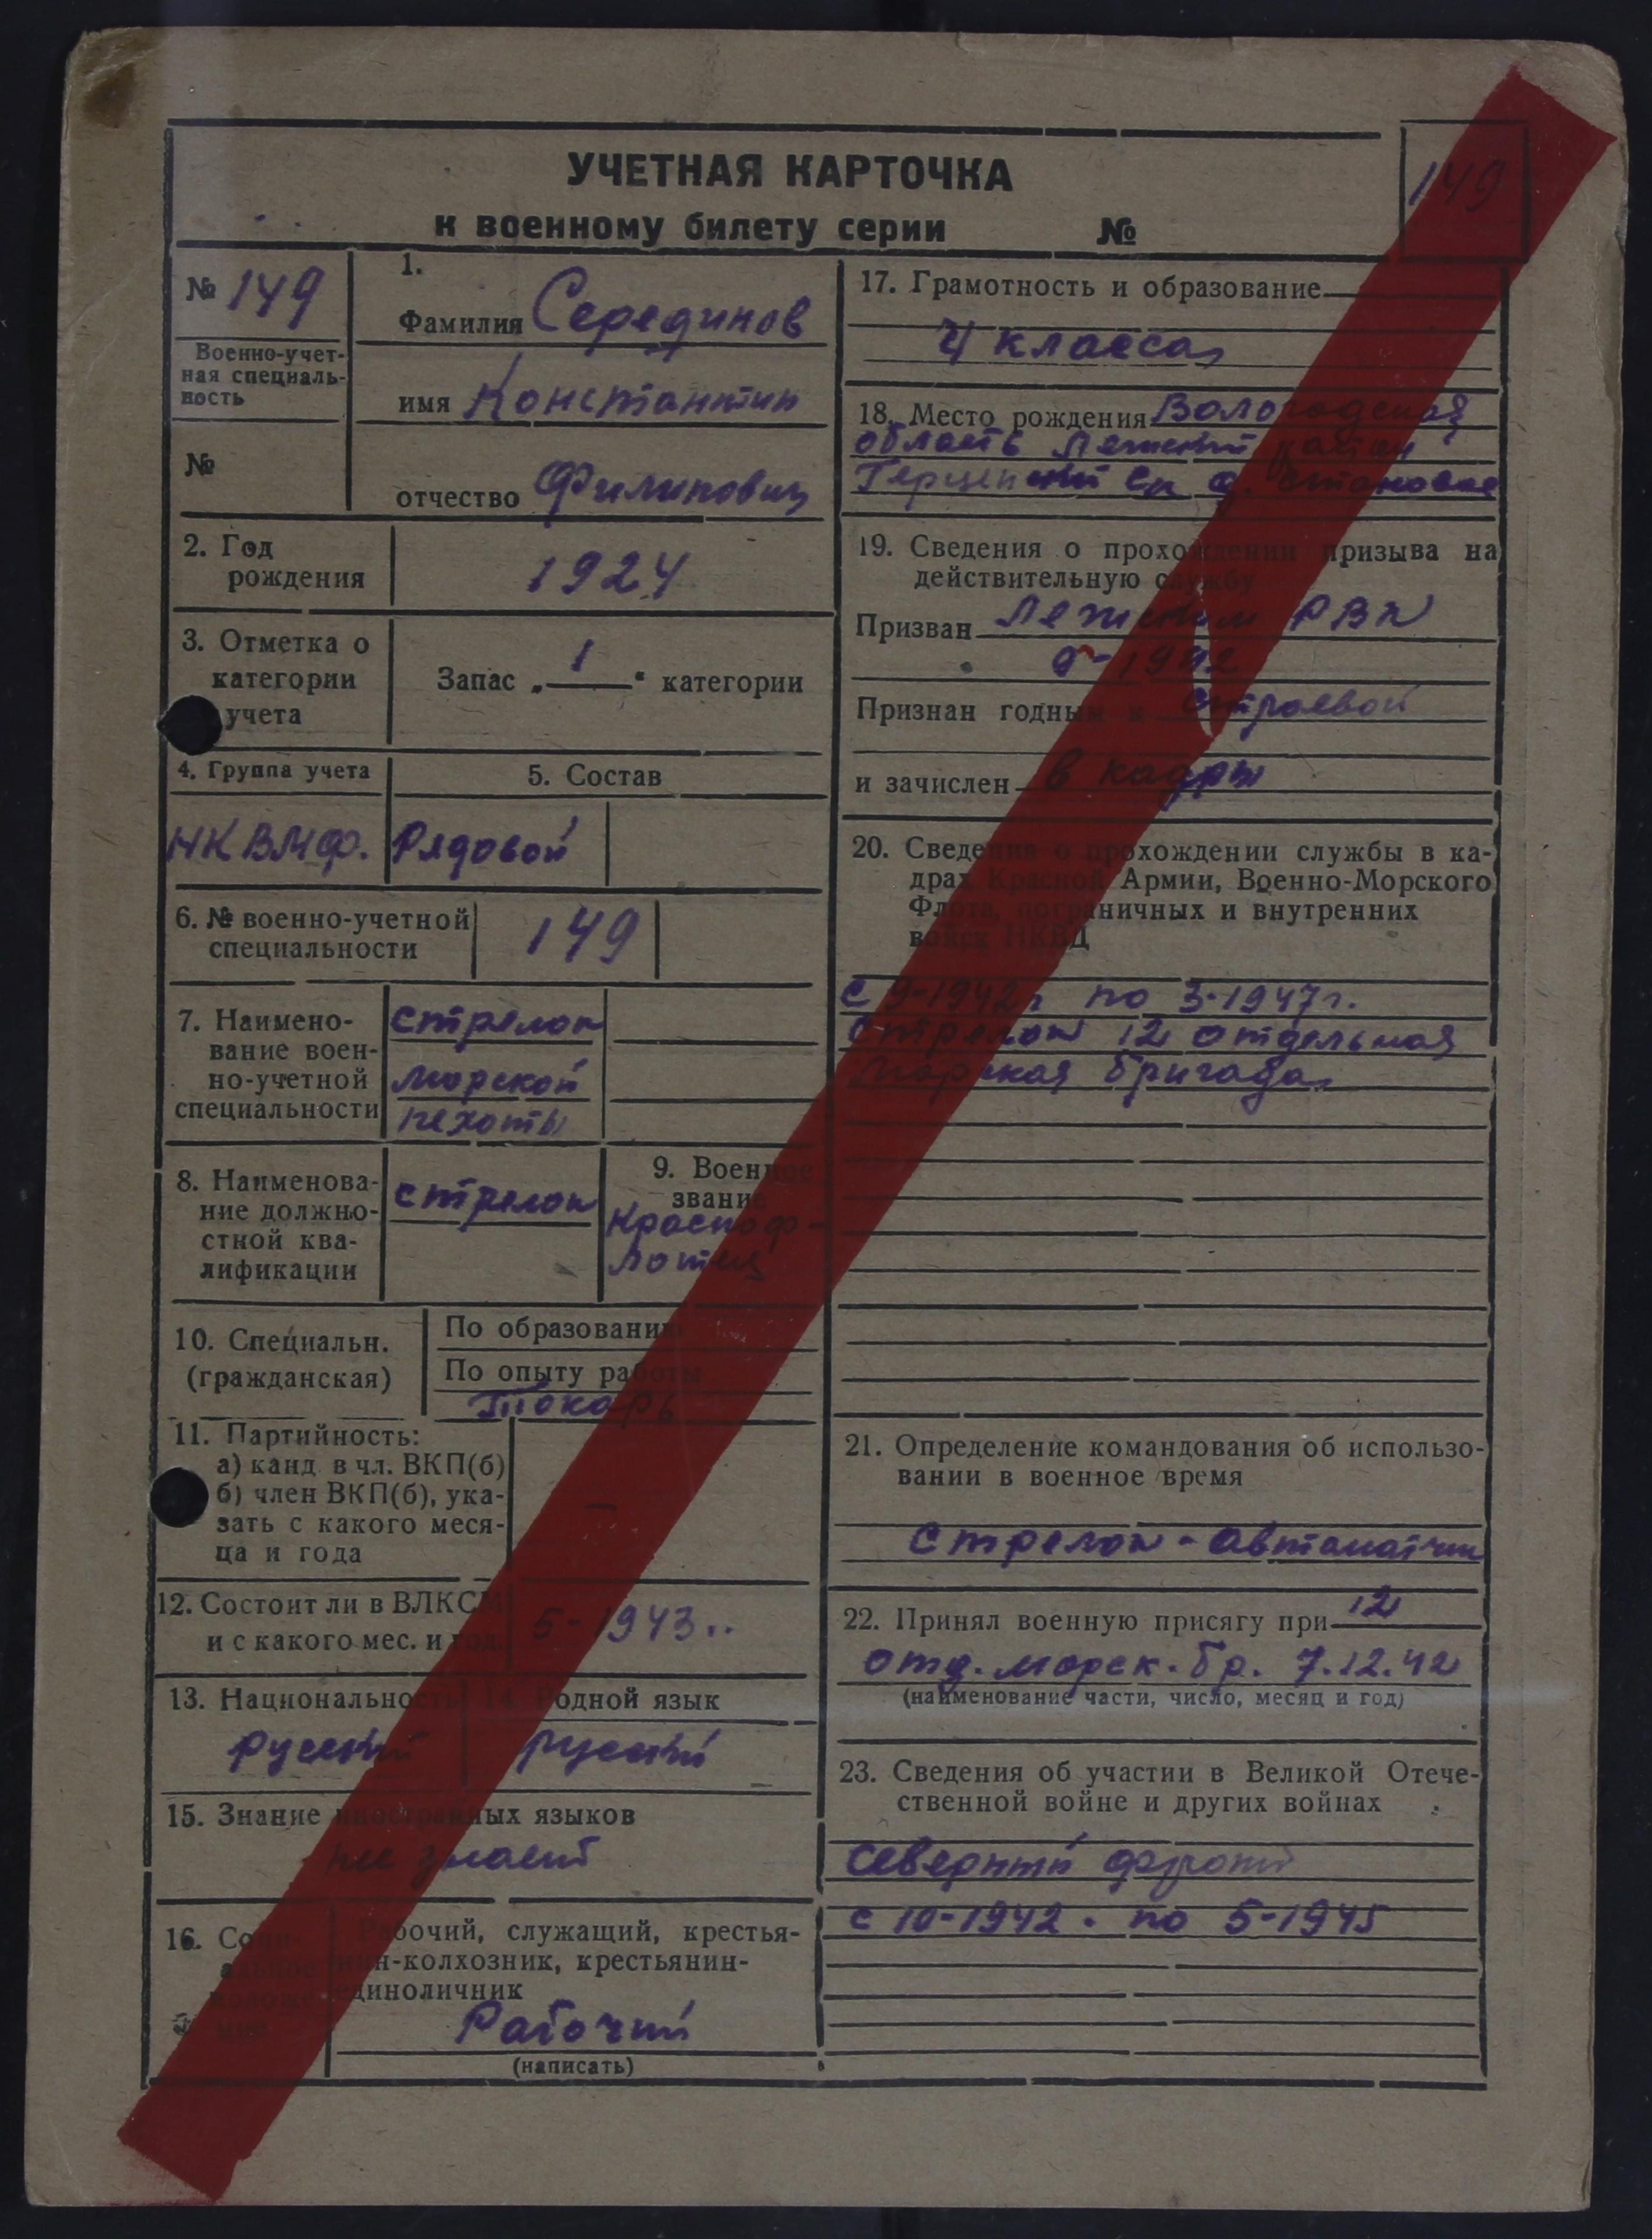 149
УЧЕТНАЯ КАРТОЧКА
к военному билету серии №
№ 149
Военно-учет-
ная специаль-
ность
№
1.
Фамилия Серединов
имя Константин
отчество Филипович
2. Год
рождения
1924
3. Отметка о
категории
учета
Запас „ 1 “ категории
4. Группа учета
5. Состав
НКВМФ.
Рядовой
6. № военно-учетной
специальности
149
7. Наимено-
вание воен-
но-учетной
специальности
стрелок
морской
пехоты
8. Наименова-
ние должно-
стной ква-
лификации
стрелок
9. Военное
звание
Красноф-
лотец
10. Специальн.
(гражданская)
По образованию
По опыту работы
Токарь
11. Партийность:
а) канд. в чл. ВКП(б)
б) член ВКП(б), ука-
зать с какого меся-
ца и года
—
12. Состоит ли в ВЛКСМ
и с какого мес. и год.
5-1943..
13. Национальность
русский
14. Родной язык
русский
15. Знание иностранных языков
не знает
16. Соци-
альное
положе-
ние
Рабочий, служащий, крестья-
нин-колхозник, крестьянин-
единоличник
Рабочий
(написать)
17. Грамотность и образование
4 класса
18. Место рождения Вологодская
область Лежский район
Герценский с/с д. Становое
19. Сведения о прохождении призыва на
действительную службу
Призван Лежским РВК
9-1942
Признан годным к строевой
и зачислен в кадры
20. Сведения о прохождении службы в ка-
драх Красной Армии, Военно-Морского
Флота, пограничных и внутренних
войск НКВД
С 9-1942г по 3-1947г.
Стрелок 12 отдельная
Морская бригада
21. Определение командования об использо-
вании в военное время
Стрелок-автоматчик
22. Принял военную присягу при 12
отд. морск. бр. 7.12.42
(наименование части, число, месяц и год)
23. Сведения об участии в Великой Отече-
ственной войне и других войнах
Северный фронт
с 10-1942. по 5-1945